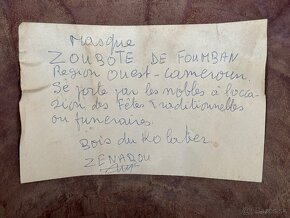 Masque
ZOUBOTE DE FOUMBAN
Région Ouest-Cameroun.
Sé porte par les nobles à l'occa
zion des Fêtes Traditionnelles
ou funeraires.
Bois du Kolatier
ZENABOU